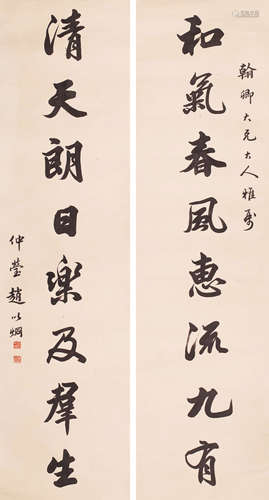 翰卿大兄大人雅属
和氣春風惠流九有
清天朗日樂及羣生
仲瑩趙以炯